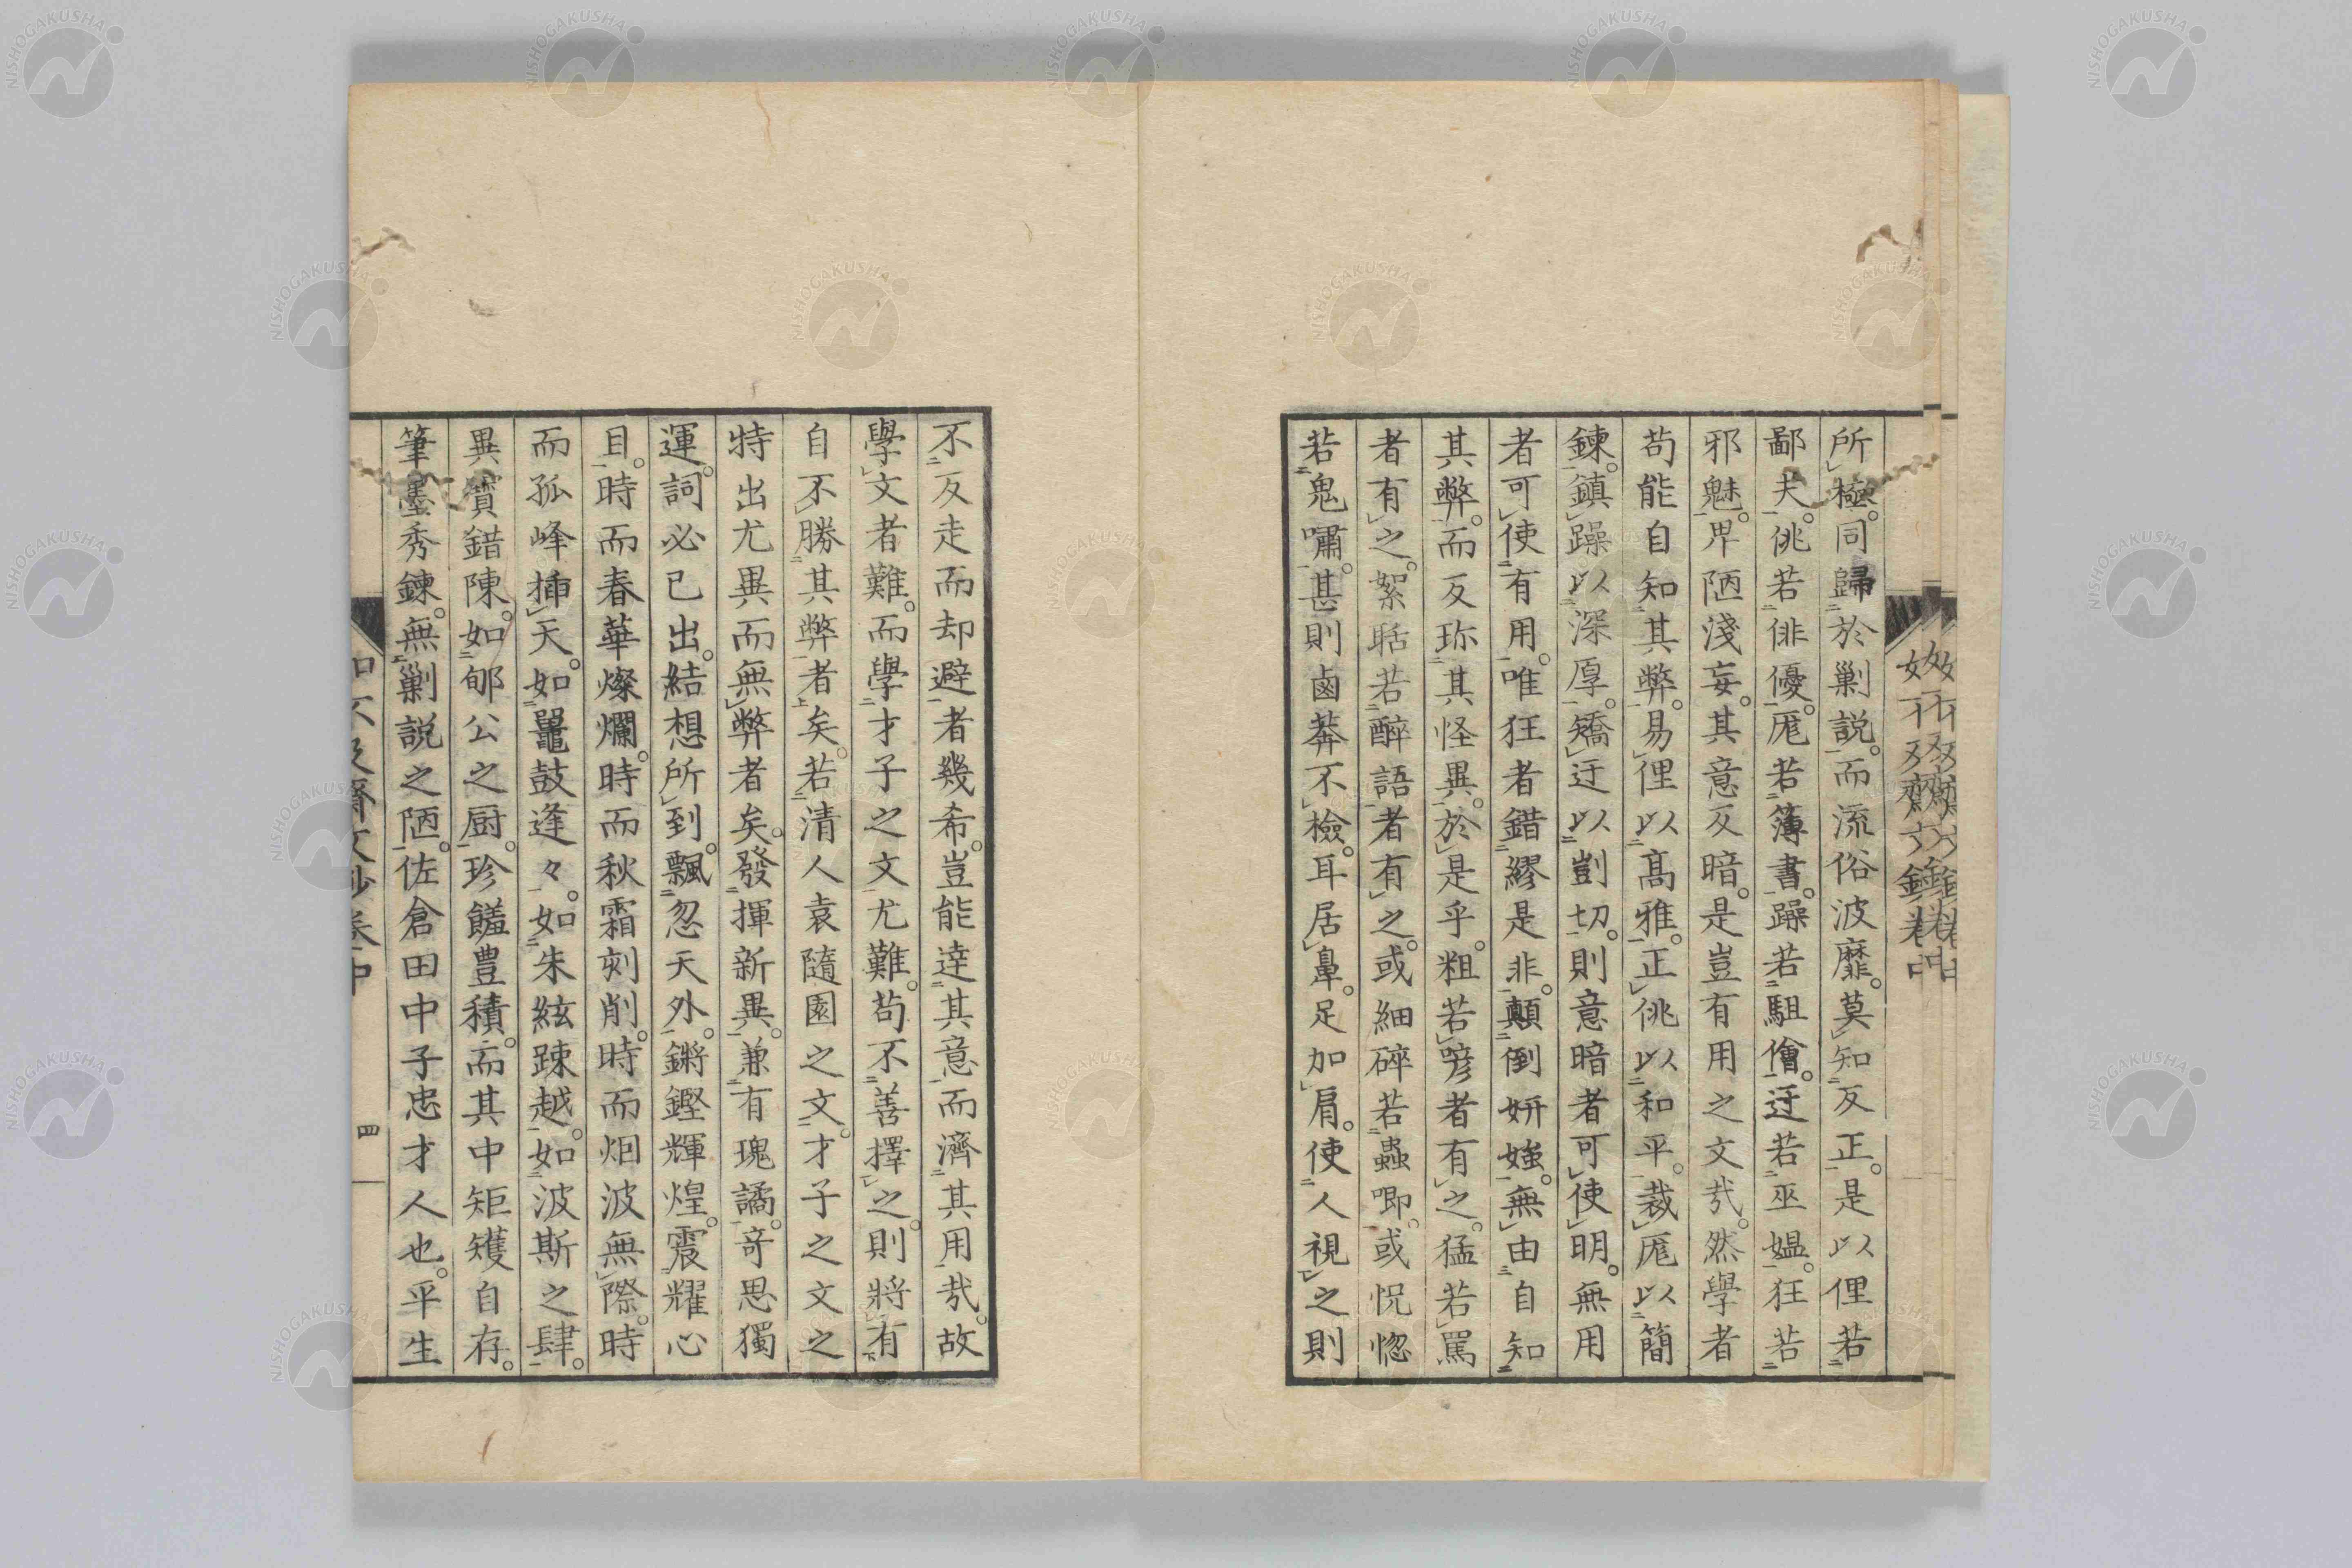 所極。同歸於剿説。而流俗波靡。莫知反正。是以俚若
鄙夫。佻若俳優。厖若簿書。躁若駔儈。迂若巫媼。狂若
邪魅。卑陋淺妄。其意反暗。是豈有用之文哉。然學者
苟能自知其弊。易俚以高雅。正佻以和平。裁厖以簡
鍊。鎮躁以深厚。矯迂以剴切。則意暗者可使明。無用
者可使有用。唯狂者錯繆是非。顛倒妍媸。無由自知
其弊。而反珎其怪異。於是乎。粗若喭者有之。猛若罵
者有之。絮聒若醉語者有之。或細碎若蟲喞。或怳惚
若鬼嘯。甚則鹵莽不檢。耳居鼻。足加肩。使人視之則
不反走而却避者幾希。豈能達其意而濟其用哉。故
學文者難。而學才子之文尤難。苟不善擇之。則將有
自不勝其弊者矣。若清人袁隨園之文。才子之文之
特出尤異而無弊者矣。發揮新異。兼有瑰譎。竒思獨
運。詞必已出。結想所到。飄忽天外。鏘鏗輝煌。震耀心
目。時而春華燦爛。時而秋霜刻削。時而烟波無際。時
而孤峰揷天。如鼉鼓逢々。如朱絃踈越。如波斯之肆。
異寶錯陳。如郇公之厨。珍饈豊積。而其中矩矱自存。
筆墨秀鍊。無剿説之陋。佐倉田中子忠才人也。平生
如不及齋文鈔卷中
四